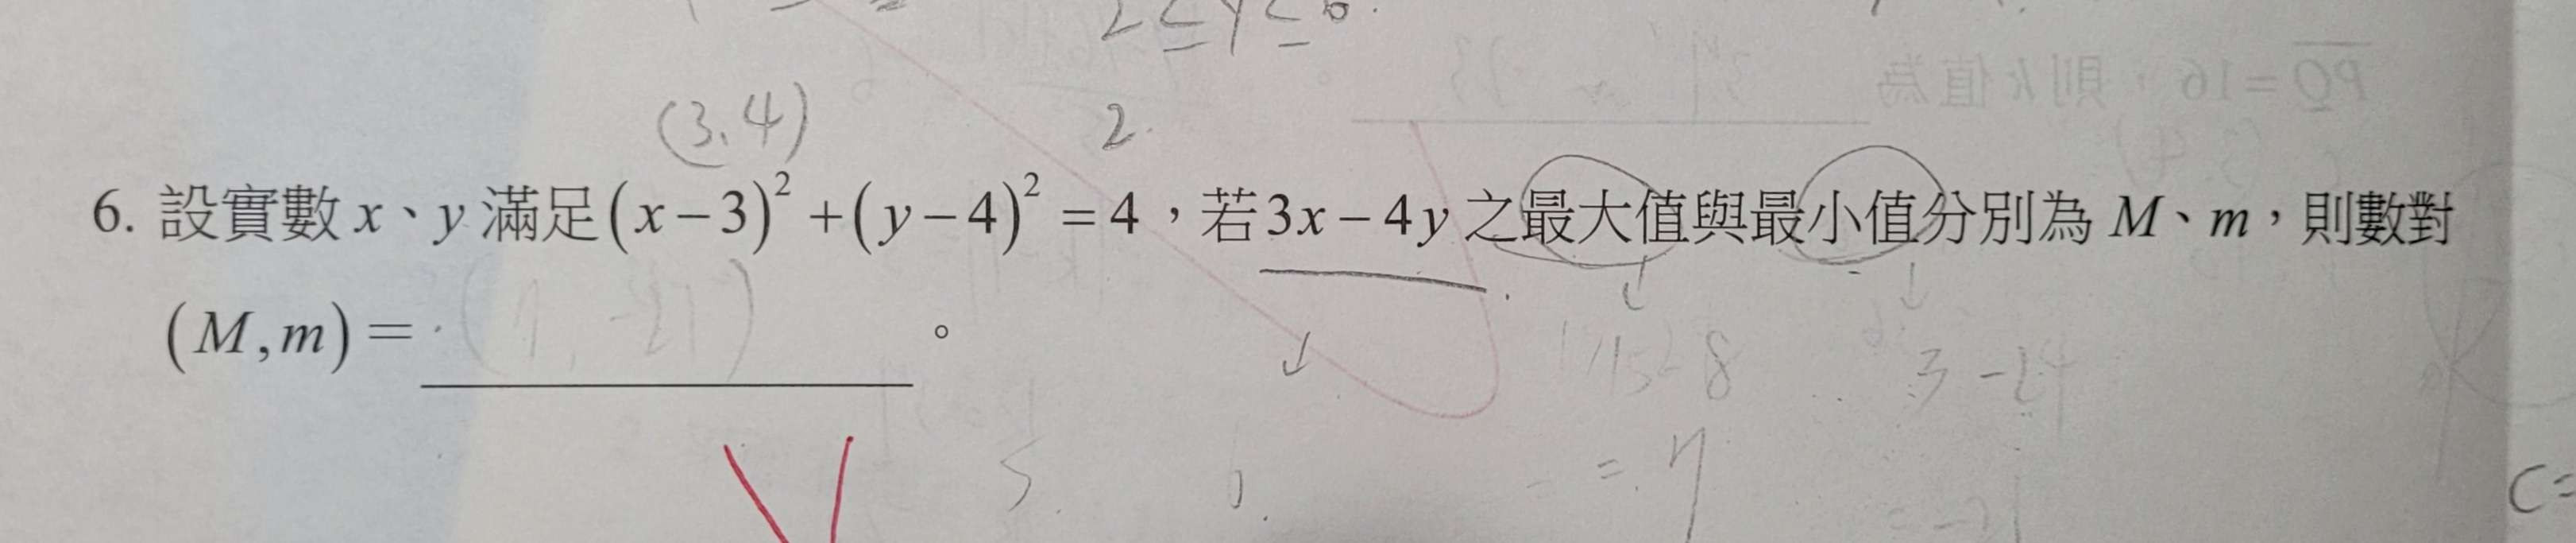 2≤y≤6.
(3.4)
2.
6. 設實數 x、y 滿足 (x−3)² + (y−4)² = 4，若 3x−4y 之最大值與最小值分別為 M、m，則數對
(M,m) = (7, -21) 。
15-8
3-24
5.
= 7
= -21
C=